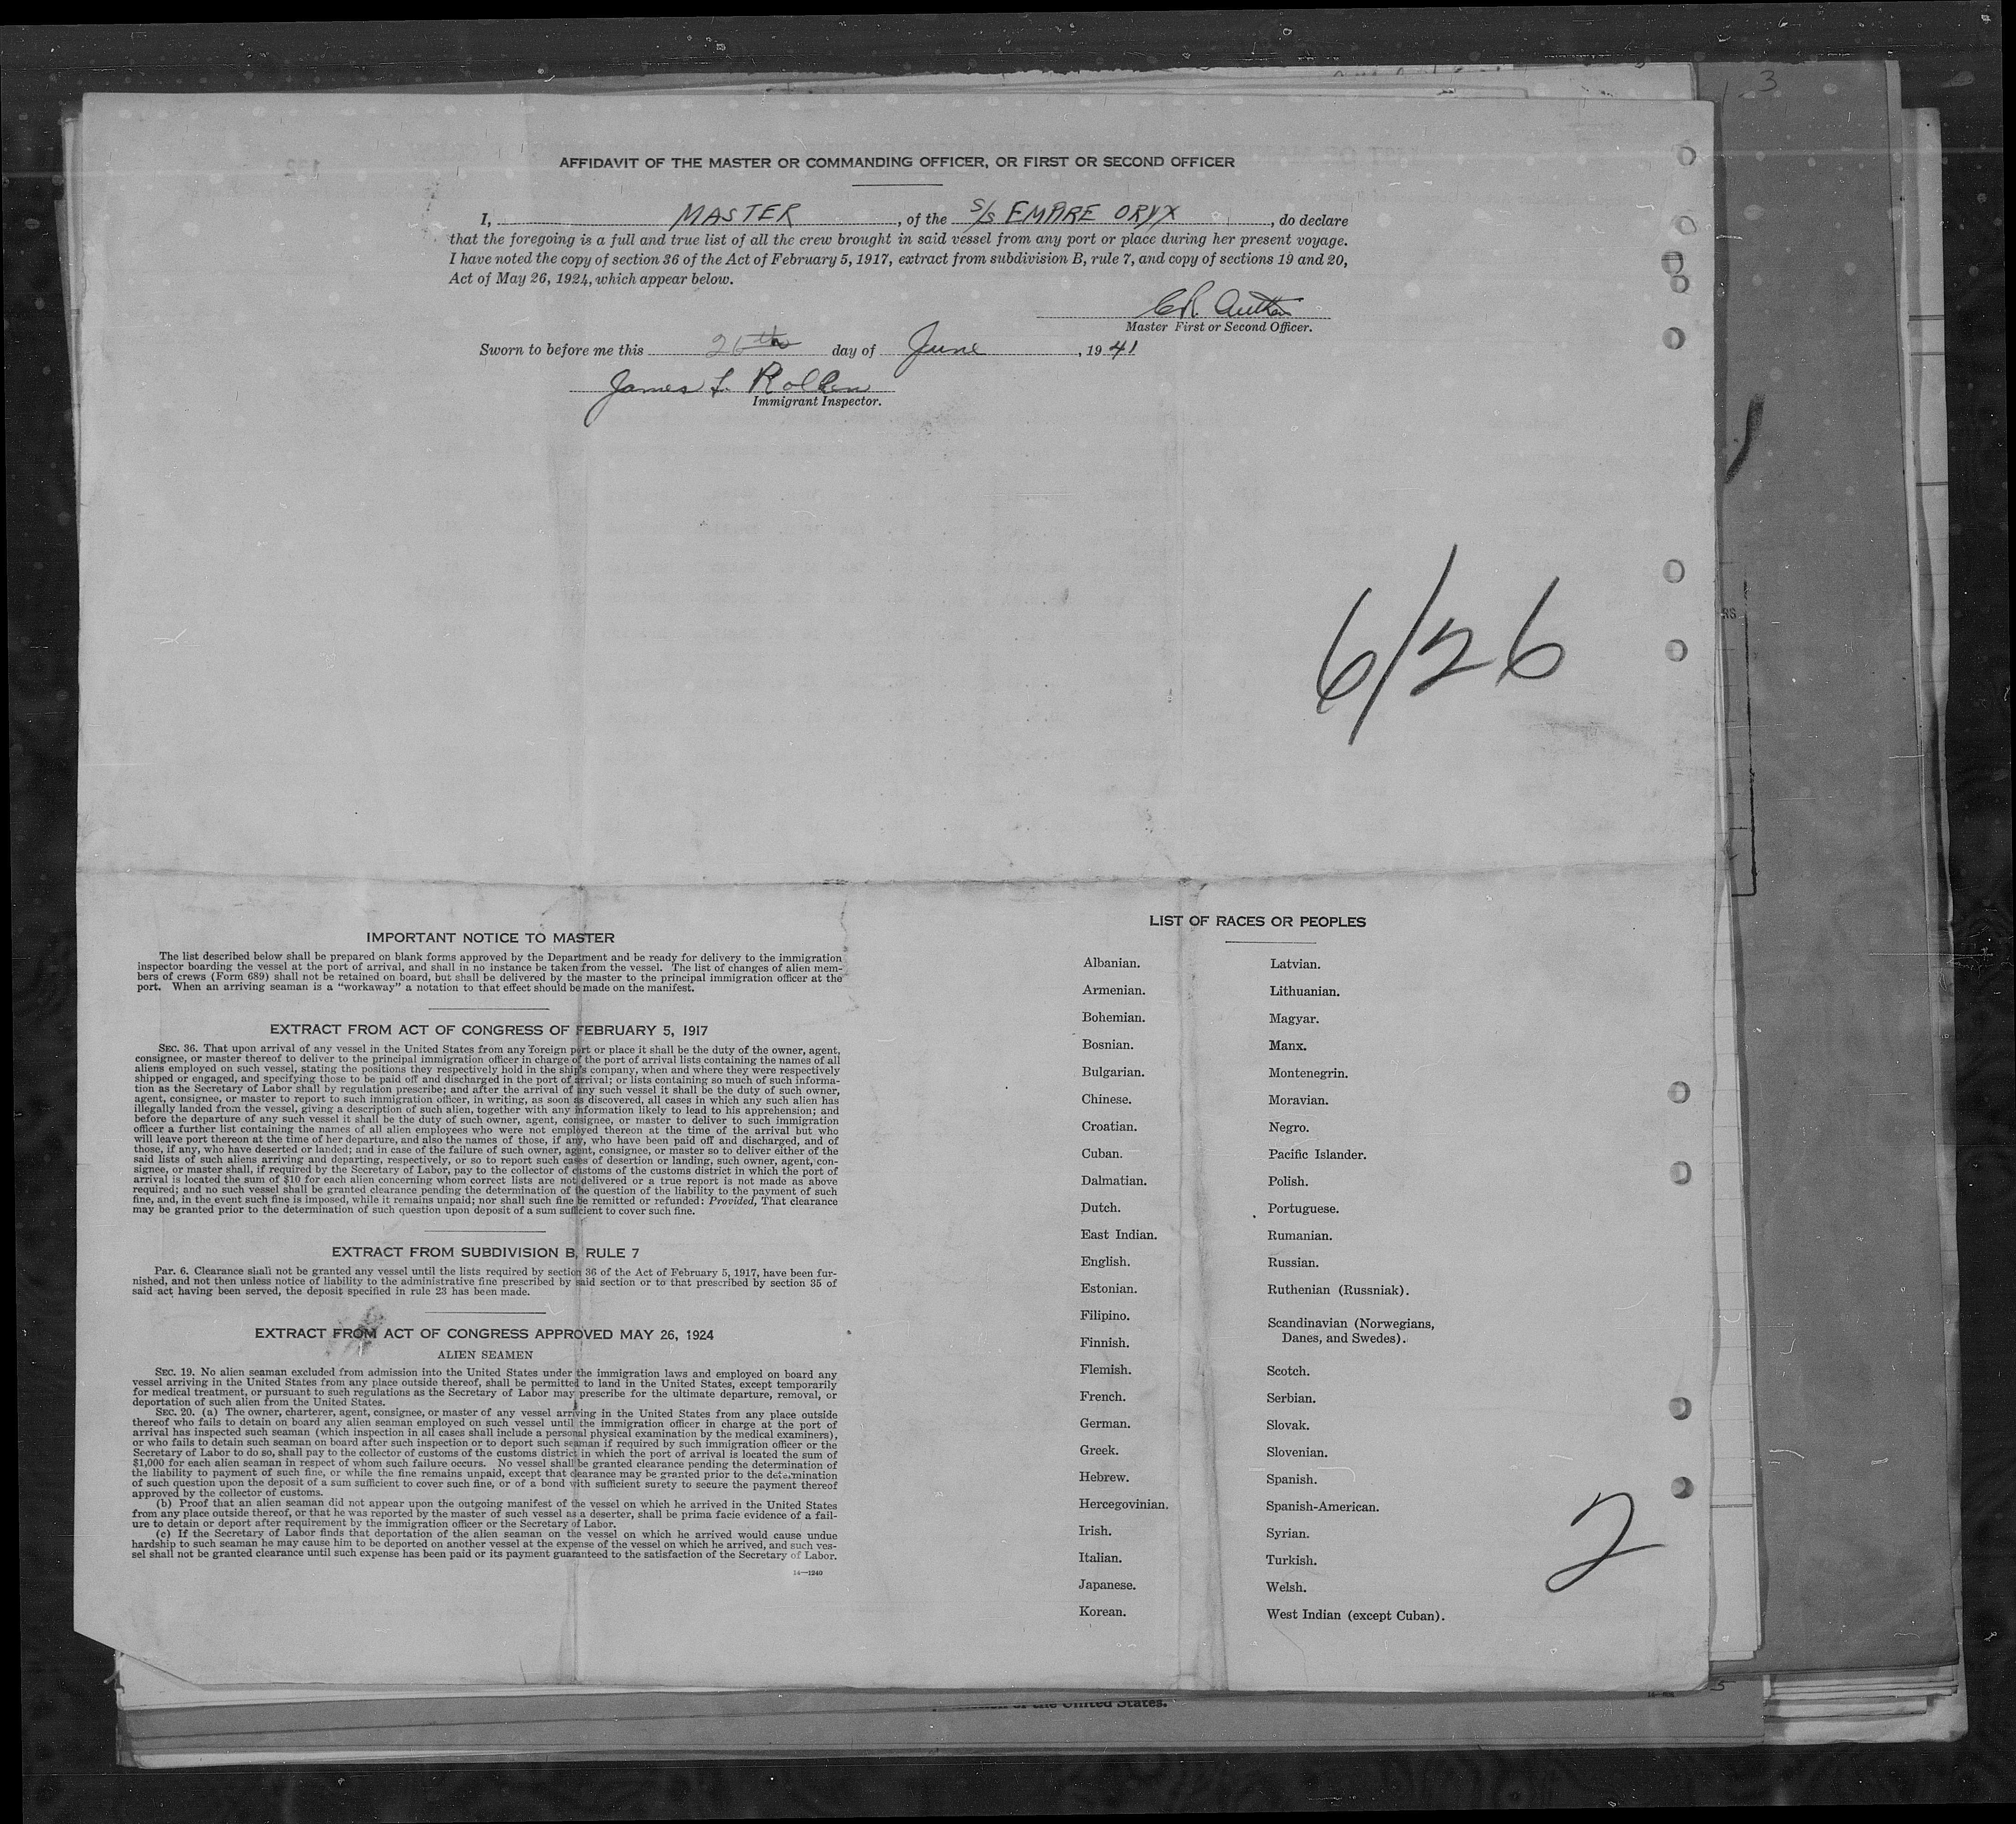 3
AFFIDAVIT OF THE MASTER OR COMMANDING OFFICER, OR FIRST OR SECOND OFFICER
I, MASTER, of the S/S EMPIRE ORYX, do declare
that the foregoing is a full and true list of all the crew brought in said vessel from any port or place during her present voyage.
I have noted the copy of section 36 of the Act of February 5, 1917, extract from subdivision B, rule 7, and copy of sections 19 and 20,
Act of May 26, 1924, which appear below.
Master First or Second Officer.
Sworn to before me this 26th day of June, 1941
James L.
Immigrant Inspector.
6/26
IMPORTANT NOTICE TO MASTER
The list described below shall be prepared on blank forms approved by the Department and be ready for delivery to the immigration
inspector boarding the vessel at the port of arrival, and shall in no instance be taken from the vessel. The list of changes of alien mem-
bers of crews (Form 689) shall not be retained on board, but shall be delivered by the master to the principal immigration officer at the
port. When an arriving seaman is a "workaway" a notation to that effect should be made on the manifest.
EXTRACT FROM ACT OF CONGRESS OF FEBRUARY 5, 1917
SEC. 36. That upon arrival of any vessel in the United States from any foreign port or place it shall be the duty of the owner, agent,
consignee, or master thereof to deliver to the principal immigration officer in charge of the port of arrival lists containing the names of all
aliens employed on such vessel, stating the positions they respectively hold in the ship's company, when and where they were respectively
shipped or engaged, and specifying those to be paid off and discharged in the port of arrival; or lists containing so much of such informa-
tion as the Secretary of Labor shall by regulation prescribe; and after the arrival of any such vessel it shall be the duty of such owner,
agent, consignee, or master to report to such immigration officer, in writing, as soon as discovered, all cases in which any such alien has
illegally landed from the vessel, giving a description of such alien, together with any information likely to lead to his apprehension; and
before the departure of any such vessel it shall be the duty of such owner, agent, consignee, or master to deliver to such immigration
officer a further list containing the names of all alien employees who were not employed thereon at the time of the arrival but who
will leave port thereon at the time of her departure, and also the names of those, if any, who have been paid off and discharged, and of
those, if any, who have deserted or landed; and in case of the failure of such owner, agent, consignee, or master so to deliver either of the
said lists of such aliens arriving and departing, respectively, or so to report such cases of desertion or landing, such owner, agent, con-
signee, or master shall, if required by the Secretary of Labor, pay to the collector of customs of the customs district in which the port of
arrival is located the sum of $10 for each alien concerning whom correct lists are not delivered or a true report is not made as above
required; and no such vessel shall be granted clearance pending the determination of the question of the liability to the payment of such
fine, and, in the event such fine is imposed, while it remains unpaid; nor shall such fine be remitted or refunded: Provided, That clearance
may be granted prior to the determination of such question upon deposit of a sum sufficient to cover such fine.
EXTRACT FROM SUBDIVISION B, RULE 7
Par. 6. Clearance shall not be granted any vessel until the lists required by section 36 of the Act of February 5, 1917, have been fur-
nished, and not then unless notice of liability to the administrative fine prescribed by said section or to that prescribed by section 35 of
said act having been served, the deposit specified in rule 23 has been made.
EXTRACT FROM ACT OF CONGRESS APPROVED MAY 26, 1924
ALIEN SEAMEN
SEC. 19. No alien seaman excluded from admission into the United States under the immigration laws and employed on board any
vessel arriving in the United States from any place outside thereof, shall be permitted to land in the United States, except temporarily
for medical treatment, or pursuant to such regulations as the Secretary of Labor may prescribe for the ultimate departure, removal, or
deportation of such alien from the United States.
SEC. 20. (a) The owner, charterer, agent, consignee, or master of any vessel arriving in the United States from any place outside
thereof who fails to detain on board any alien seaman employed on such vessel until the immigration officer in charge at the port of
arrival has inspected such seaman (which inspection in all cases shall include a personal physical examination by the medical examiners),
or who fails to detain such seaman on board after such inspection or to deport such seaman if required by such immigration officer or the
Secretary of Labor to do so, shall pay to the collector of customs of the customs district in which the port of arrival is located the sum of
$1,000 for each alien seaman in respect of whom such failure occurs. No vessel shall be granted clearance pending the determination of
the liability to payment of such fine, or while the fine remains unpaid, except that clearance may be granted prior to the determination
of such question upon the deposit of a sum sufficient to cover such fine, or of a bond with sufficient surety to secure the payment thereof
approved by the collector of customs.
(b) Proof that an alien seaman did not appear upon the outgoing manifest of the vessel on which he arrived in the United States
from any place outside thereof, or that he was reported by the master of such vessel as a deserter, shall be prima facie evidence of a fail-
ure to detain or deport after requirement by the immigration officer or the Secretary of Labor.
(c) If the Secretary of Labor finds that deportation of the alien seaman on the vessel on which he arrived would cause undue
hardship to such seaman he may cause him to be deported on another vessel at the expense of the vessel on which he arrived, and such ves-
sel shall not be granted clearance until such expense has been paid or its payment guaranteed to the satisfaction of the Secretary of Labor.
14—1240
LIST OF RACES OR PEOPLES
Albanian.
Armenian.
Bohemian.
Bosnian.
Bulgarian.
Chinese.
Croatian.
Cuban.
Dalmatian.
Dutch.
East Indian.
English.
Estonian.
Filipino.
Finnish.
Flemish.
French.
German.
Greek.
Hebrew.
Hercegovinian.
Irish.
Italian.
Japanese.
Korean.
Latvian.
Lithuanian.
Magyar.
Manx.
Montenegrin.
Moravian.
Negro.
Pacific Islander.
Polish.
Portuguese.
Rumanian.
Russian.
Ruthenian (Russniak).
Scandinavian (Norwegians,
Danes, and Swedes).
Scotch.
Serbian.
Slovak.
Slovenian.
Spanish.
Spanish-American.
Syrian.
Turkish.
Welsh.
West Indian (except Cuban).
2
of the United States.
5